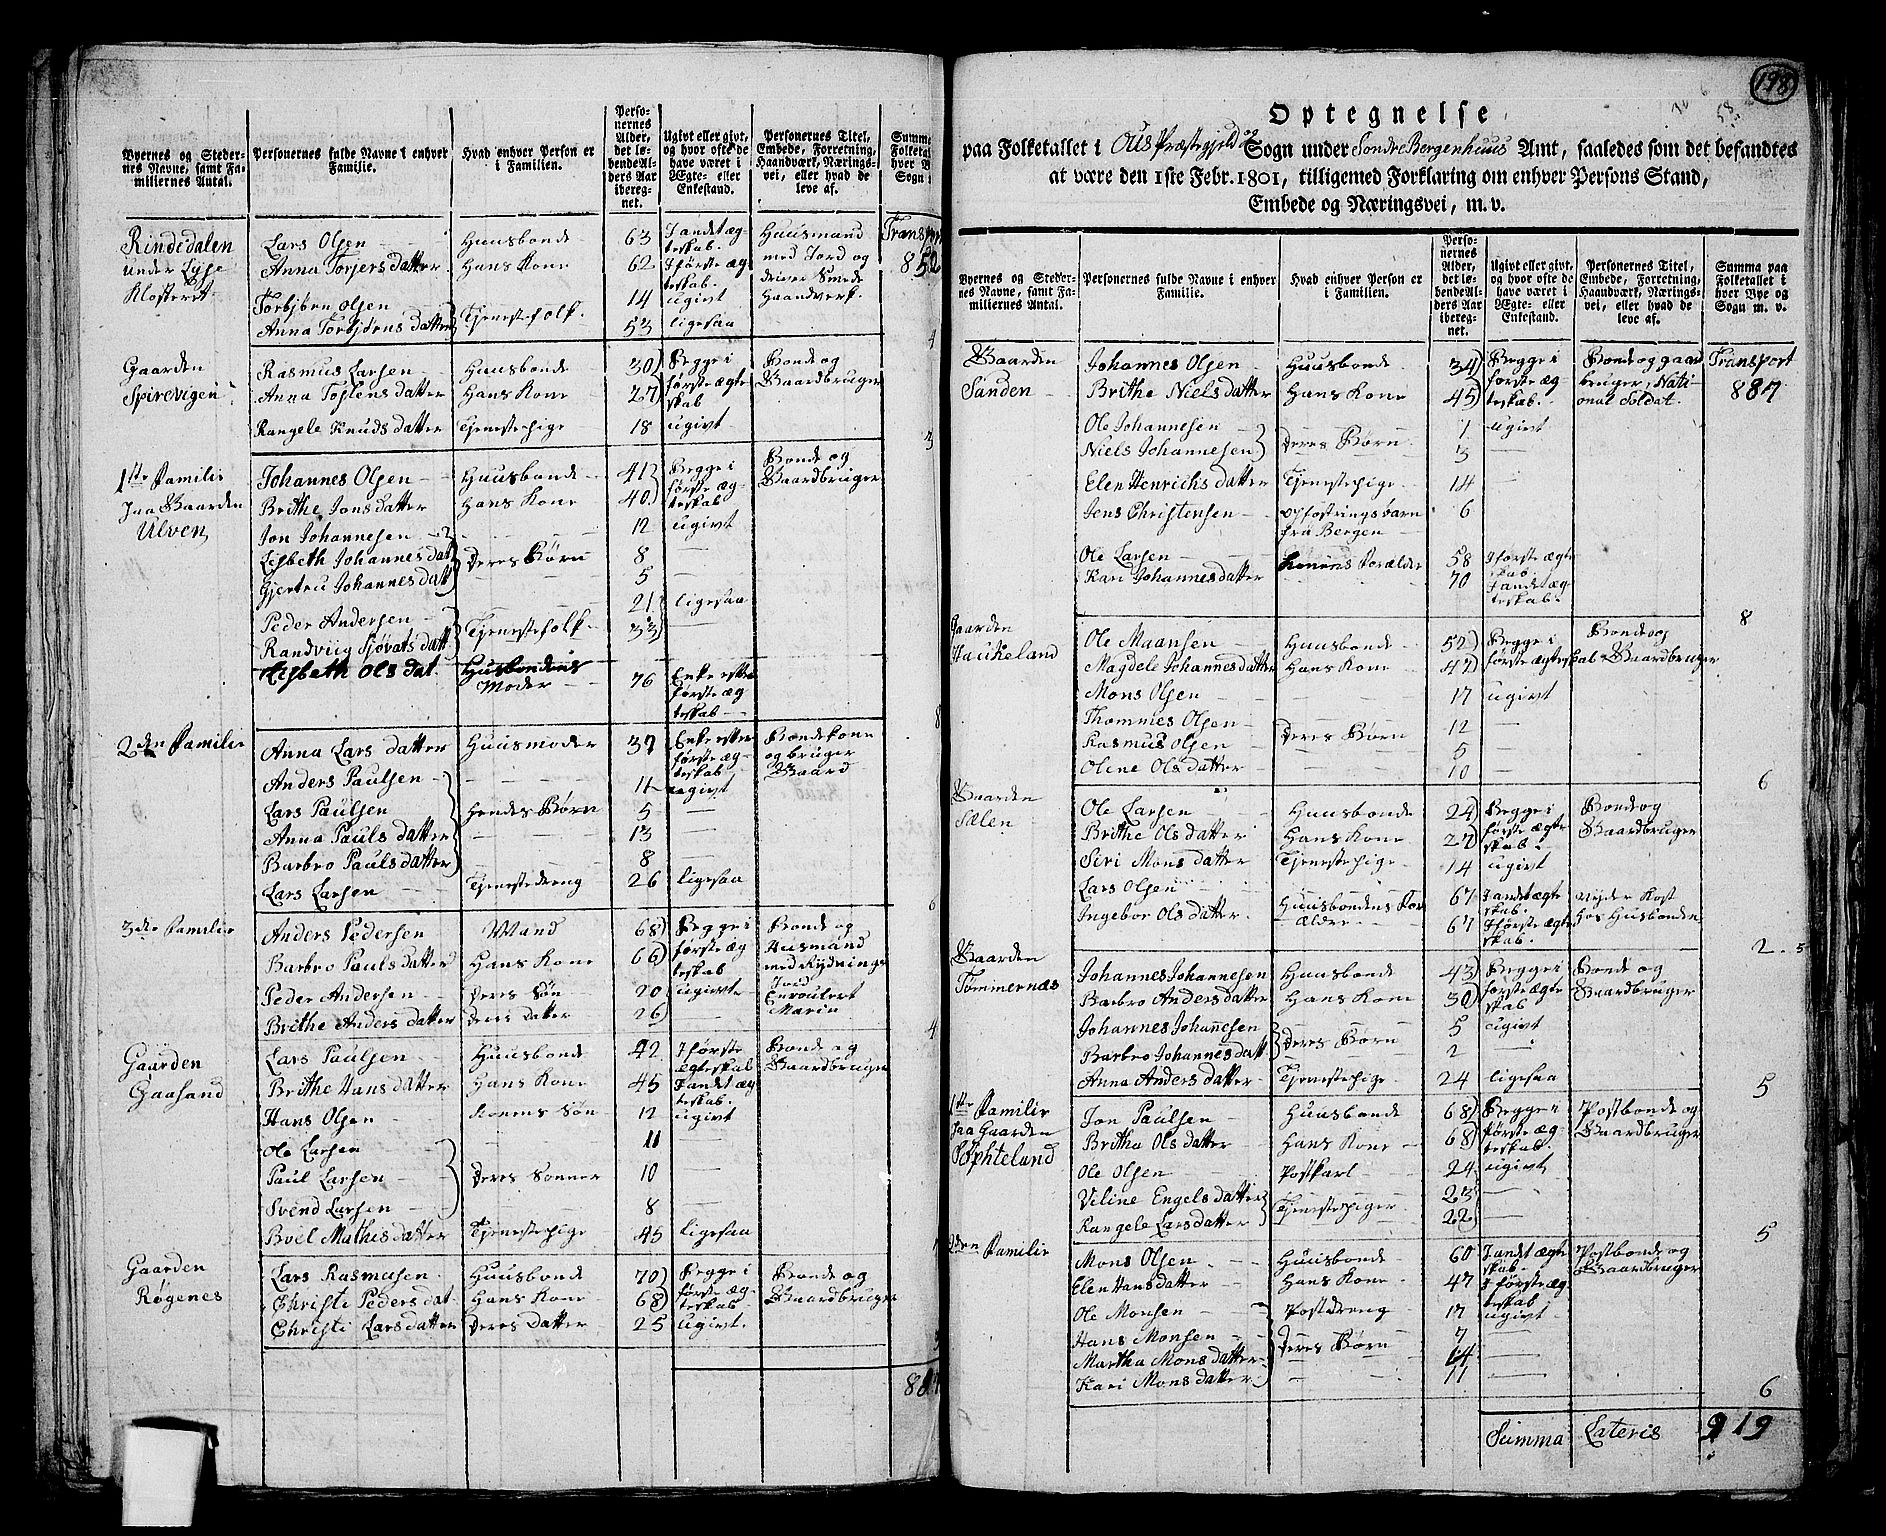 Byernes og Steder-
nes Navne, samt Fa-
miliernes Antal.
Personernes fulde Navne i enhver
Familie.
Hvad enhver Person er
i Familien.
Perso-
nernes
Alder,
det lø-
bende Al-
ders Aar
ibereg-
net.
Ugivt eller givt,
og hvor ofte de
have været i
Ægte- eller
Enkestand.
Personernes Titel,
Embede, Forretning,
Haandværk, Nærings-
vei, eller hvad de
leve af.
Summa
Folketal
hver B
Sogn
Transport
852
Rindedalen
under Lyse
Klosteret
Lars Olsen Huusbonde 63 J andet æg-
teskab. Huusmand
Anna Torjers datter Hans Kone 62 J første æg
teskab. med Jord og
driver Smede
Haandverk.
Torbjørn Olsen 14 ugivt
Anna Torbjørns datter Tjenestefolk 53 ligesaa
4
Gaarden
Spirevigen
Rasmus Larsen Huusbonde 30 Begge i
første ægte
skab Bonde og
Gaardbruger
Anna Tostens datter Hans Kone 27
Rangele Knuds datter Tjenestepige 18 ugivt
3
1ste Familie
Paa Gaarden
Ulven
Johannes Olsen Huusbonde 41 Begge i
første æg
teskab Bonde og
Gaardbruger
Brithe Jons datter Hans Kone 40
Jon Johannesen 12 ugivt
Lisbeth Johannes dat Deres Børn 8
Gjertru Johannes datt 5
Peder Andersen 21 ligesaa
Randviig Sjovats datt Tjenestefolk 33
Lisbeth Ols dat. Husbondens
Moder 76 Enke efter
første æg
teskab
8
2den Familie
Anna Lars datter Huusmoder 37 Enke efter
første æg-
teskab Bondekone
og bruger
Gaard
Anders Paulsen 11 ugivt
Lars Paulsen Hendes Børn 5
Anna Pauls datter 13
Barbro Pauls datter 8
Lars Larsen Tjenestedreng 26 ligesaa
6
3die Familie
Anders Pedersen Mand 68 Begge i
første æg
teskab Bonde og
Husmand
med Rydnings
Jord
Barbro Pauls datter Hans Kone 66
Peder Andersen Deres Søn 20 ugivte Enroulert
Marin
Brithe Anders datter Deres Datter 26
4
Gaarden
Gaasand
Lars Paulsen Huusbonde 42 J første
Egteskab Bonde og
Gaardbruger
Brithe Hans datter Hans Kone 45 J andet æg
teskab.
Hans Olsen Konens Søn 12 ugivt
Ole Larsen 11
Paul Larsen Deres Sønner 10
Svend Larsen 8
Boel Mathis datter Tjenestepige 45 ligesaa
Gaarden
Røgenes
Lars Rasmusen Huusbonde 70 Begge i
første æg-
teskab Bonde og
Gaardbruger
Christi Peders dat Hans Kone 68
Christi Lars datter Deres Datter 25 ugivt.
198
58
Optegnelse
paa Folketallet i Ous Præstegjeld og Sogn under Søndre Bergenhuus Amt, saaledes som det befandtes
at være den 1ste Febr. 1801, tilligemed Forklaring om enhver Persons Stand,
Embede og Næringsvei, m. v.
Byernes og Steder-
nes Navne, samt Fa-
miliernes Antal.
Personernes fulde Navne i enhver
Familie.
Hvad enhver Person er
i Familien.
Perso-
nernes
Alder,
det lø-
bende Al-
ders Aar
ibereg-
net.
Ugivt eller givt,
og hvor ofte de
have været i
Ægte- eller
Enkestand.
Personernes Titel,
Embede, Forretning,
Haandværk, Nærings-
vei, eller hvad de
leve af.
Summa paa
Folketallet i
hver Bye og
Sogn m. v.
Transport
887
Gaarden
Sanden
Johannes Olsen Huusbonde 34 Begge i
første æg
teskab. Bonde og gaard
bruger, Nati
onal Soldat.
Brithe Niels datter Hans Kone 45
Ole Johannesen 1 ugivt
Niels Johannesen Deres Børn 3
Elen Henrichs datter Tjenestepige 14
Jens Christensen opfostringsbarn
fra Bergen 6
Ole Larsen Konens Forælder 58 J første ægte
skab
Kari Johannes datter 70 J andet æg
teskab.
8
Gaarden
Haukeland
Ole Maansen Huusbonde 52 Begge i
første ægteskab Bonde og
Gaardbruger
Magdele Johannes datter Hans Kone 47
Mons Olsen 17 ugivt
Thommes Olsen 12
Rasmus Olsen Deres Børn 5
Oline Ols datter 10
6
Gaarden
Sælen
Ole Larsen Huusbonde 24 Begge i
første ægte
skab. Bonde og
Gaardbruger
Brithe Ols datter Hans Kone 27
Siri Mons datter Tjenestepige 14 ugivt
Lars Olsen Huusbondens For
ælder 67 J andet ægte
skab. nyder Kost
hos Husbonden
Ingebor Ols datter 67 J første ægte
skab.
2. 5
Gaarden
Tømmernæs
Johannes Johannesen Huusbonde 43 Begge i
første ægte
skab Bonde og
Gaardbruger
Barbro Anders datter Hans Kone 30
Johannes Johannesen Deres Børn 5 ugivt
Barbro Johannes datt 2
Anna Anders datter Tjenestepige 24 ligesaa
5
1ste Familie
paa Gaarden
Søphteland
Jon Paulsen Huusbonde 68 Begge i
første æg-
teskab Postbonde og
Gaardbruger
Britha Ols datter Hans Kone 68
Ole Olsen Postkarl 24 ugivt
Veline Engels datter Tjenestepiger 23
Rangele Lars datter 22
5
2den Familie
Mons Olsen Huusbonde 60 J andet ægte
skab Postbonde og
Gaardbruger
Elen Hans datter Hans Kone 47 J første æg
teskab
Ole Monsen Postdreng 17 ugivt
Hans Monsen Deres Børn 7
Martha Mons datter 14
Kari Mons datter 11
6
Summa Lateris 919